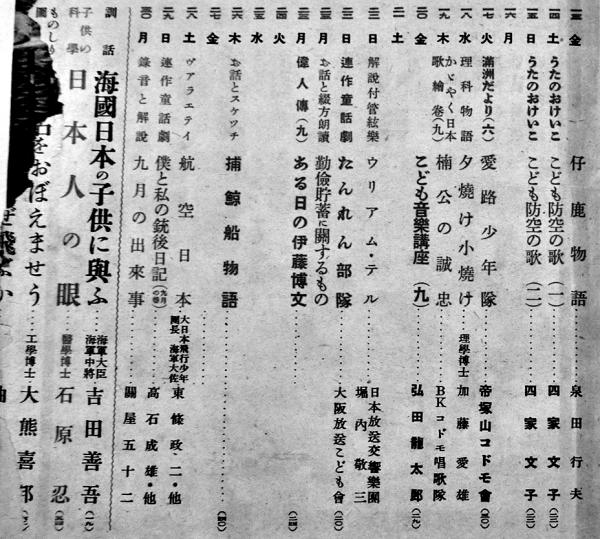 金 仔鹿物語 泉田行夫
四 土 うたのおけいこ こども防空の歌(一) 四家文子
五 日 うたのおけいこ こども防空の歌(二) 四家文子
六 月
七 火 滿洲だより(六) 愛路少年隊 帝塚山コドモ會
八 水 理科物語 夕燒け小燒け 理學博士 加藤愛雄
九 木 かゞやく日本歌繪卷(九) 楠公の誠忠 BKコドモ唱歌隊
金 こども音樂講座(九) 弘田龍太郎
土
日 解説付管絃樂 ウリアム・テル 日本放送交響樂團 堀内敬三
日 連作童話劇 たんれん部隊 大阪放送こども會
月 お話と綴方朗讀 勤儉貯蓄に關するもの
火 偉人傳(九) ある日の伊藤博文
水
木 お話とスケツチ 捕鯨船物語
土 ヴアラエテイ 航空日本 大日本飛行少年團長 海軍大佐 東條政二・他
日 連作童話劇 僕と私の銃後日記(九月の卷) 高石成雄・他
月 錄音と解説 九月の出來事 關屋五十二
訓話 海國日本の子供に與ふ 海軍大臣 海軍中將 吉田善吾
子供の科學 日本人の眼 醫學博士 石原忍
ものしり をおぼえませう 工學博士 大熊喜邦
ぜ飛ぶか